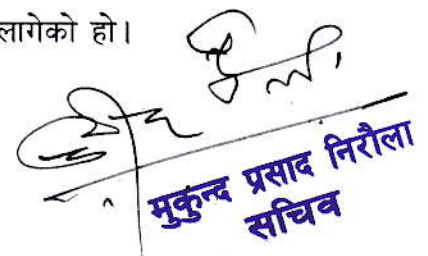 लागेको हो।
मुकुन्द प्रसाद निरौला
सचिव